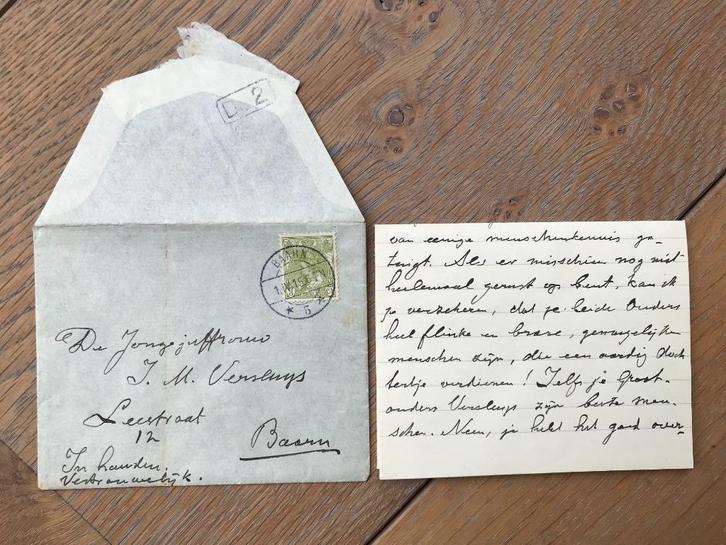 2
BAARN
5
De Jongejuffrouw
I. M. Versluys
Leestraat
12
Baarn
In handen.
Vertrouwelijk.
van eenige menschenkennis ge-
tuigt. Als er misschien nog niet
heelemaal gerust op bent, kan ik
je verzekeren, dat je beide Ouders
heel flinke en brave, genoegelijke
menschen zijn, die een aardig doch-
tertje verdienen! Zelfs je Groot-
ouders Versluys zijn beste men-
schen. Neen, je hebt het goed over-